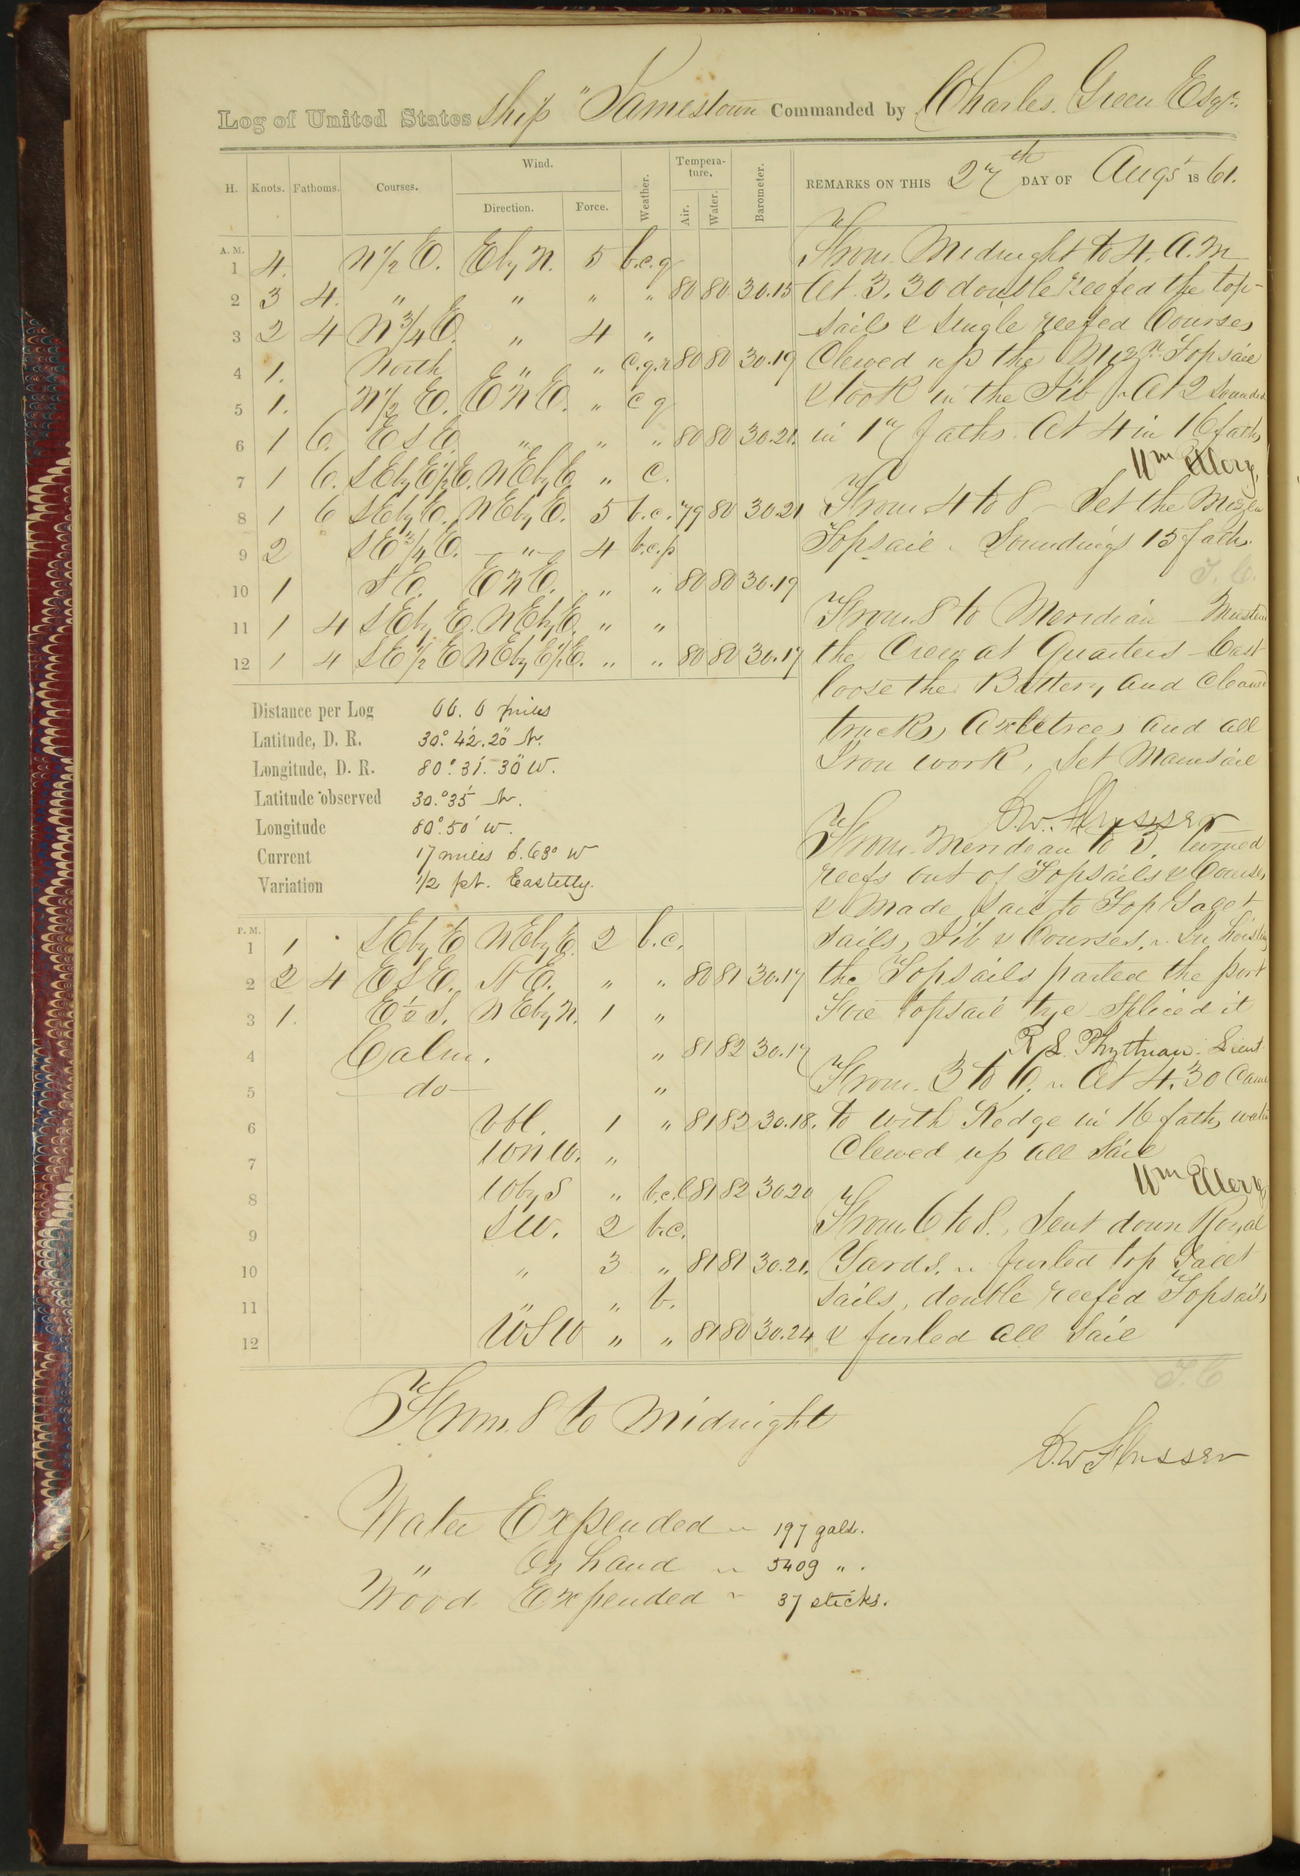 Log of United States Ship "Jamestown Commanded by Charles Green Esqr.
H. Knots. Fathoms. Courses. Wind. Direction. Force. Weather. Tempera-ture. Air. Water. Barometer. REMARKS ON THIS 27th DAY OF Augst 1861.
A. M.
1 4. N½E. EbyN. 5 b.c.q
2 3 4. " " " " 80 80 30.15
3 2 4 N¾E. " 4 "
4 1. North " " c.q.r 80 80 30.19
5 1. N½E. ENE. " c q
6 1 6. ESE. " " " 80 80 30.21.
7 1 6. SEbyE½E. NEbyE " c.
8 1 6 SEbyE. NEbyE. 5 b.c. 79 80 30.21
9 2 SE¾E. " 4 b.c.p
10 1 SE. ENE. " " 80 80 30.19
11 1 4 SEbyE. NEbyE. " "
12 1 4 SE½E NEbyE½E. " " 80 80 30.17
From Midnight to 4. A.M
At 3.30 double reefed the top-
sails & single reefed Courses
Clewed up the Mizn. Topsail
& took in the Jib " At 2 sounded
in 17 faths. At 4 in 16 faths
Wm Ellery
From 4 to 8 - Set the Mizen
Topsail " Soundings 15 faths.
T. C.
From 8 to Meridian - Mustered
the Crew at Quarters - Cast
loose the Battery and Cleaned
trucks, Axletrees and all
Iron work, Set Mainsail
C.W. Flusser
Distance per Log 66. 0 miles
Latitude, D. R. 30°.42'.20" N.
Longitude, D. R. 80°.31'.30" W.
Latitude observed 30.°35' N.
Longitude 80°.50' W.
Current 17 miles S.63° W
Variation ½ pt. Easterly.
P. M.
1 1 . SEbyE NEbyE. 2 b.c.
2 2 4 ESE. NE. " " 80 81 30.17
3 1. E½S. NEbyN. 1 "
4 Calm. " 81 82 30.17
5 do "
6 Vbl. 1 " 81 82 30.18.
7 WNW. "
8 WbyS " b.c.l 81 82 30.20
9 SW. 2 b.c.
10 " 3 " 81 81 30.21.
11 " " b.
12 WSW " " 81 80 30.24
From Meridian to 3, turned
reefs out of Topsails & Courses
& Made sail to Top Gallt
sails, Jib & Courses. " In hoisting
the Topsails parted the port
Fore topsail tye - Spliced it
R. L. Phythian. Lieut
From 3 to 6. " At 4.30 Came
to with Kedge in 16 faths water
Clewed up all Sail
Wm Ellery
From 6 to 8, Sent down Royal
Yards. " furled top Gallt
sails, double reefed Topsails
& furled all Sail
T. C
From 8 to Midnight
C.W Flusser
Water Expended " 197 galls.
" On hand " 5409 " .
Wood Expended " 37 sticks.